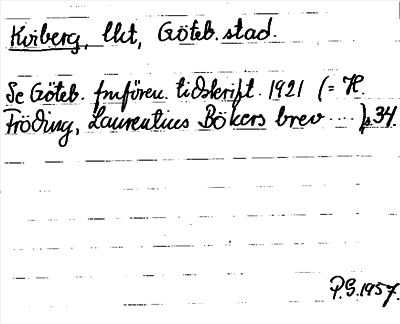 Kviberg, lkt, Göteb. stad.
Se Göteb. fmfören. tidskrift. 1921 (= H.
Fröding, Laurentius Bökers brev ... ) s. 34.
P.G. 1957.